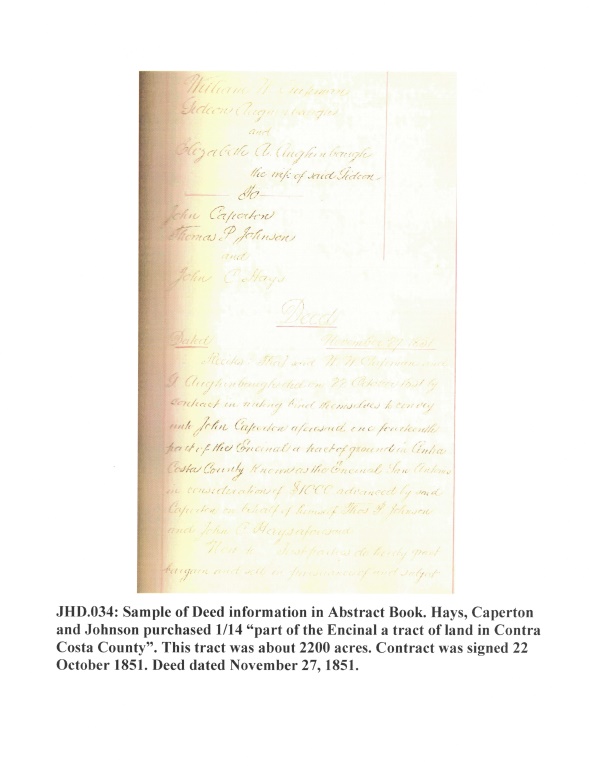 William W. Chipman
Gideon Aughinbaugh
and
Elizabeth A. Aughinbaugh
the wife of said Gideon
To
John Caperton
Thomas P. Johnson
and
John C. Hays
Deed
Dated November 27, 1851
Recites that said W. W. Chipman and
G. Aughinbaugh did on 22 October last by
contract in writing bind themselves to convey
unto John Caperton aforesaid one fourteenth
part of the Encinal a tract of ground in Contra
Costa County known as the Encinal San Antonio
in consideration of $1000 advanced by said
Caperton on behalf of himself Thos P. Johnson
and John C. Hays
parties do hereby grant
bargain and sell in pursuance of and subject
JHD.034: Sample of Deed information in Abstract Book. Hays, Caperton
and Johnson purchased 1/14 “part of the Encinal a tract of land in Contra
Costa County”. This tract was about 2200 acres. Contract was signed 22
October 1851. Deed dated November 27, 1851.